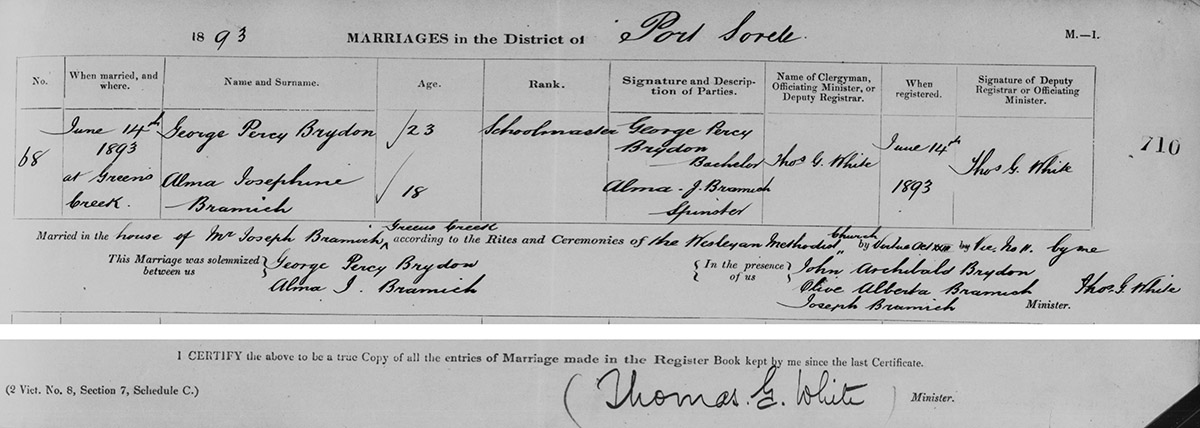 1893 MARRIAGES in the District of Port Sorell. M.—1.
No. When married, and where. Name and Surname. Age. Rank. Signature and Description of Parties. Name of Clergyman, Officiating Minister, or Deputy Registrar. When registered. Signature of Deputy Registrar or Officiating Minister.
68 June 14th 1893 at Greens Creek. George Percy Brydon 23 Schoolmaster George Percy Brydon Bachelor Thos G. White June 14th 1893 Thos G. White 710
Alma Josephine Bramich 18 Alma J. Bramich Spinster
Married in the house of Mr Joseph Bramich, Greens Creek according to the Rites and Ceremonies of the Wesleyan Methodist Church by Virtue Act by Vic. No 11. by me
This Marriage was solemnized between us George Percy Brydon In the presence of us John Archibald Brydon
Alma J. Bramich Olive Alberta Bramich Thos. G. White
Joseph Bramich Minister.
I CERTIFY the above to be a true Copy of all the entries of Marriage made in the Register Book kept by me since the last Certificate.
(2 Vict. No. 8, Section 7, Schedule C.) (Thomas. G. White Minister.